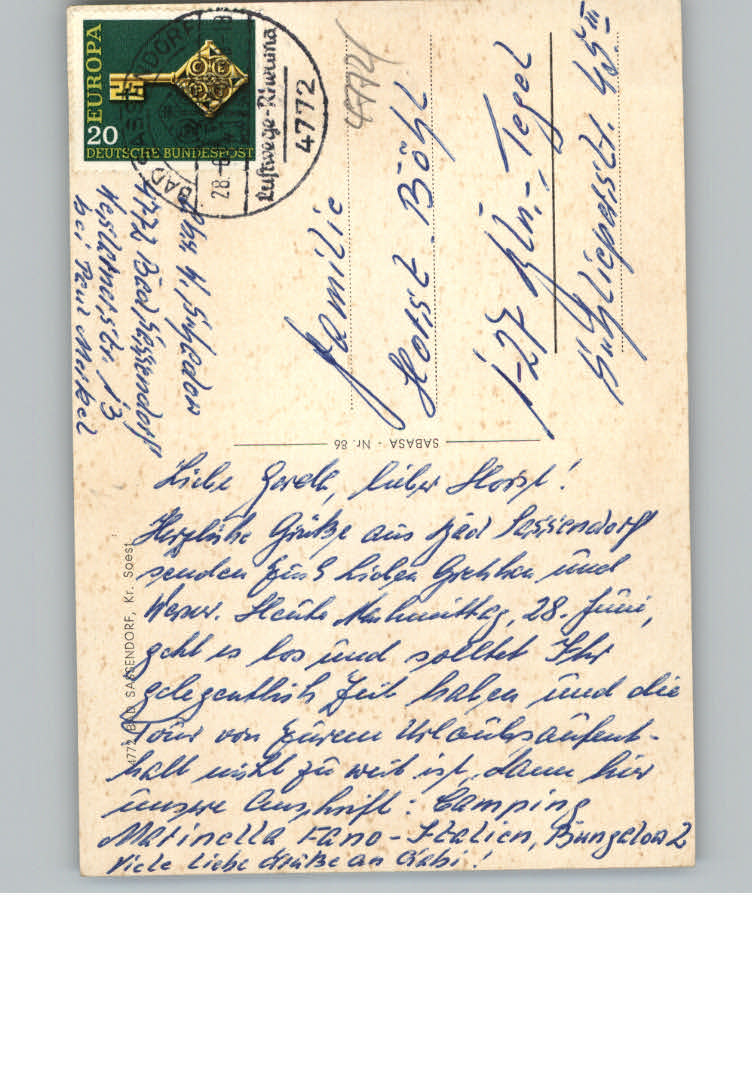 EUROPA
20
DEUTSCHE BUNDESPOST
BAD SASSENDORF
28.
Luftwege-Rheuma
4772
4772
Abs. W.
4772 Bad Sassendorf
13
bei Paul
Familie
Horst Böhl
1-27 Bln.-Tegel
45 III
SABASA - Nr. 86
4772 BAD SASSENDORF, Kr. Soest
Liebe Gerda, lieber Horst!
Herzliche Grüße aus Bad Sassendorf
senden Euch Lieben Gretchen und
Werner. Heute Nachmittag, 28. Juni,
geht es los und solltet Ihr
gelegentlich Zeit haben und die
Tour von Eurem Urlaubsaufent-
halt nicht zu weit ist, dann hier
unsere Anschrift: Camping
Marinella Fano-Italien, Bungalow 2
Viele liebe Grüße an Gabi!